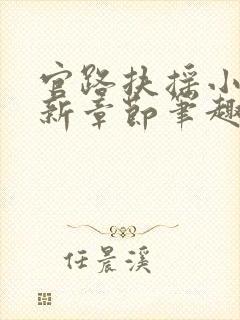 官路扶摇小
新章节笔趣
任晨溪